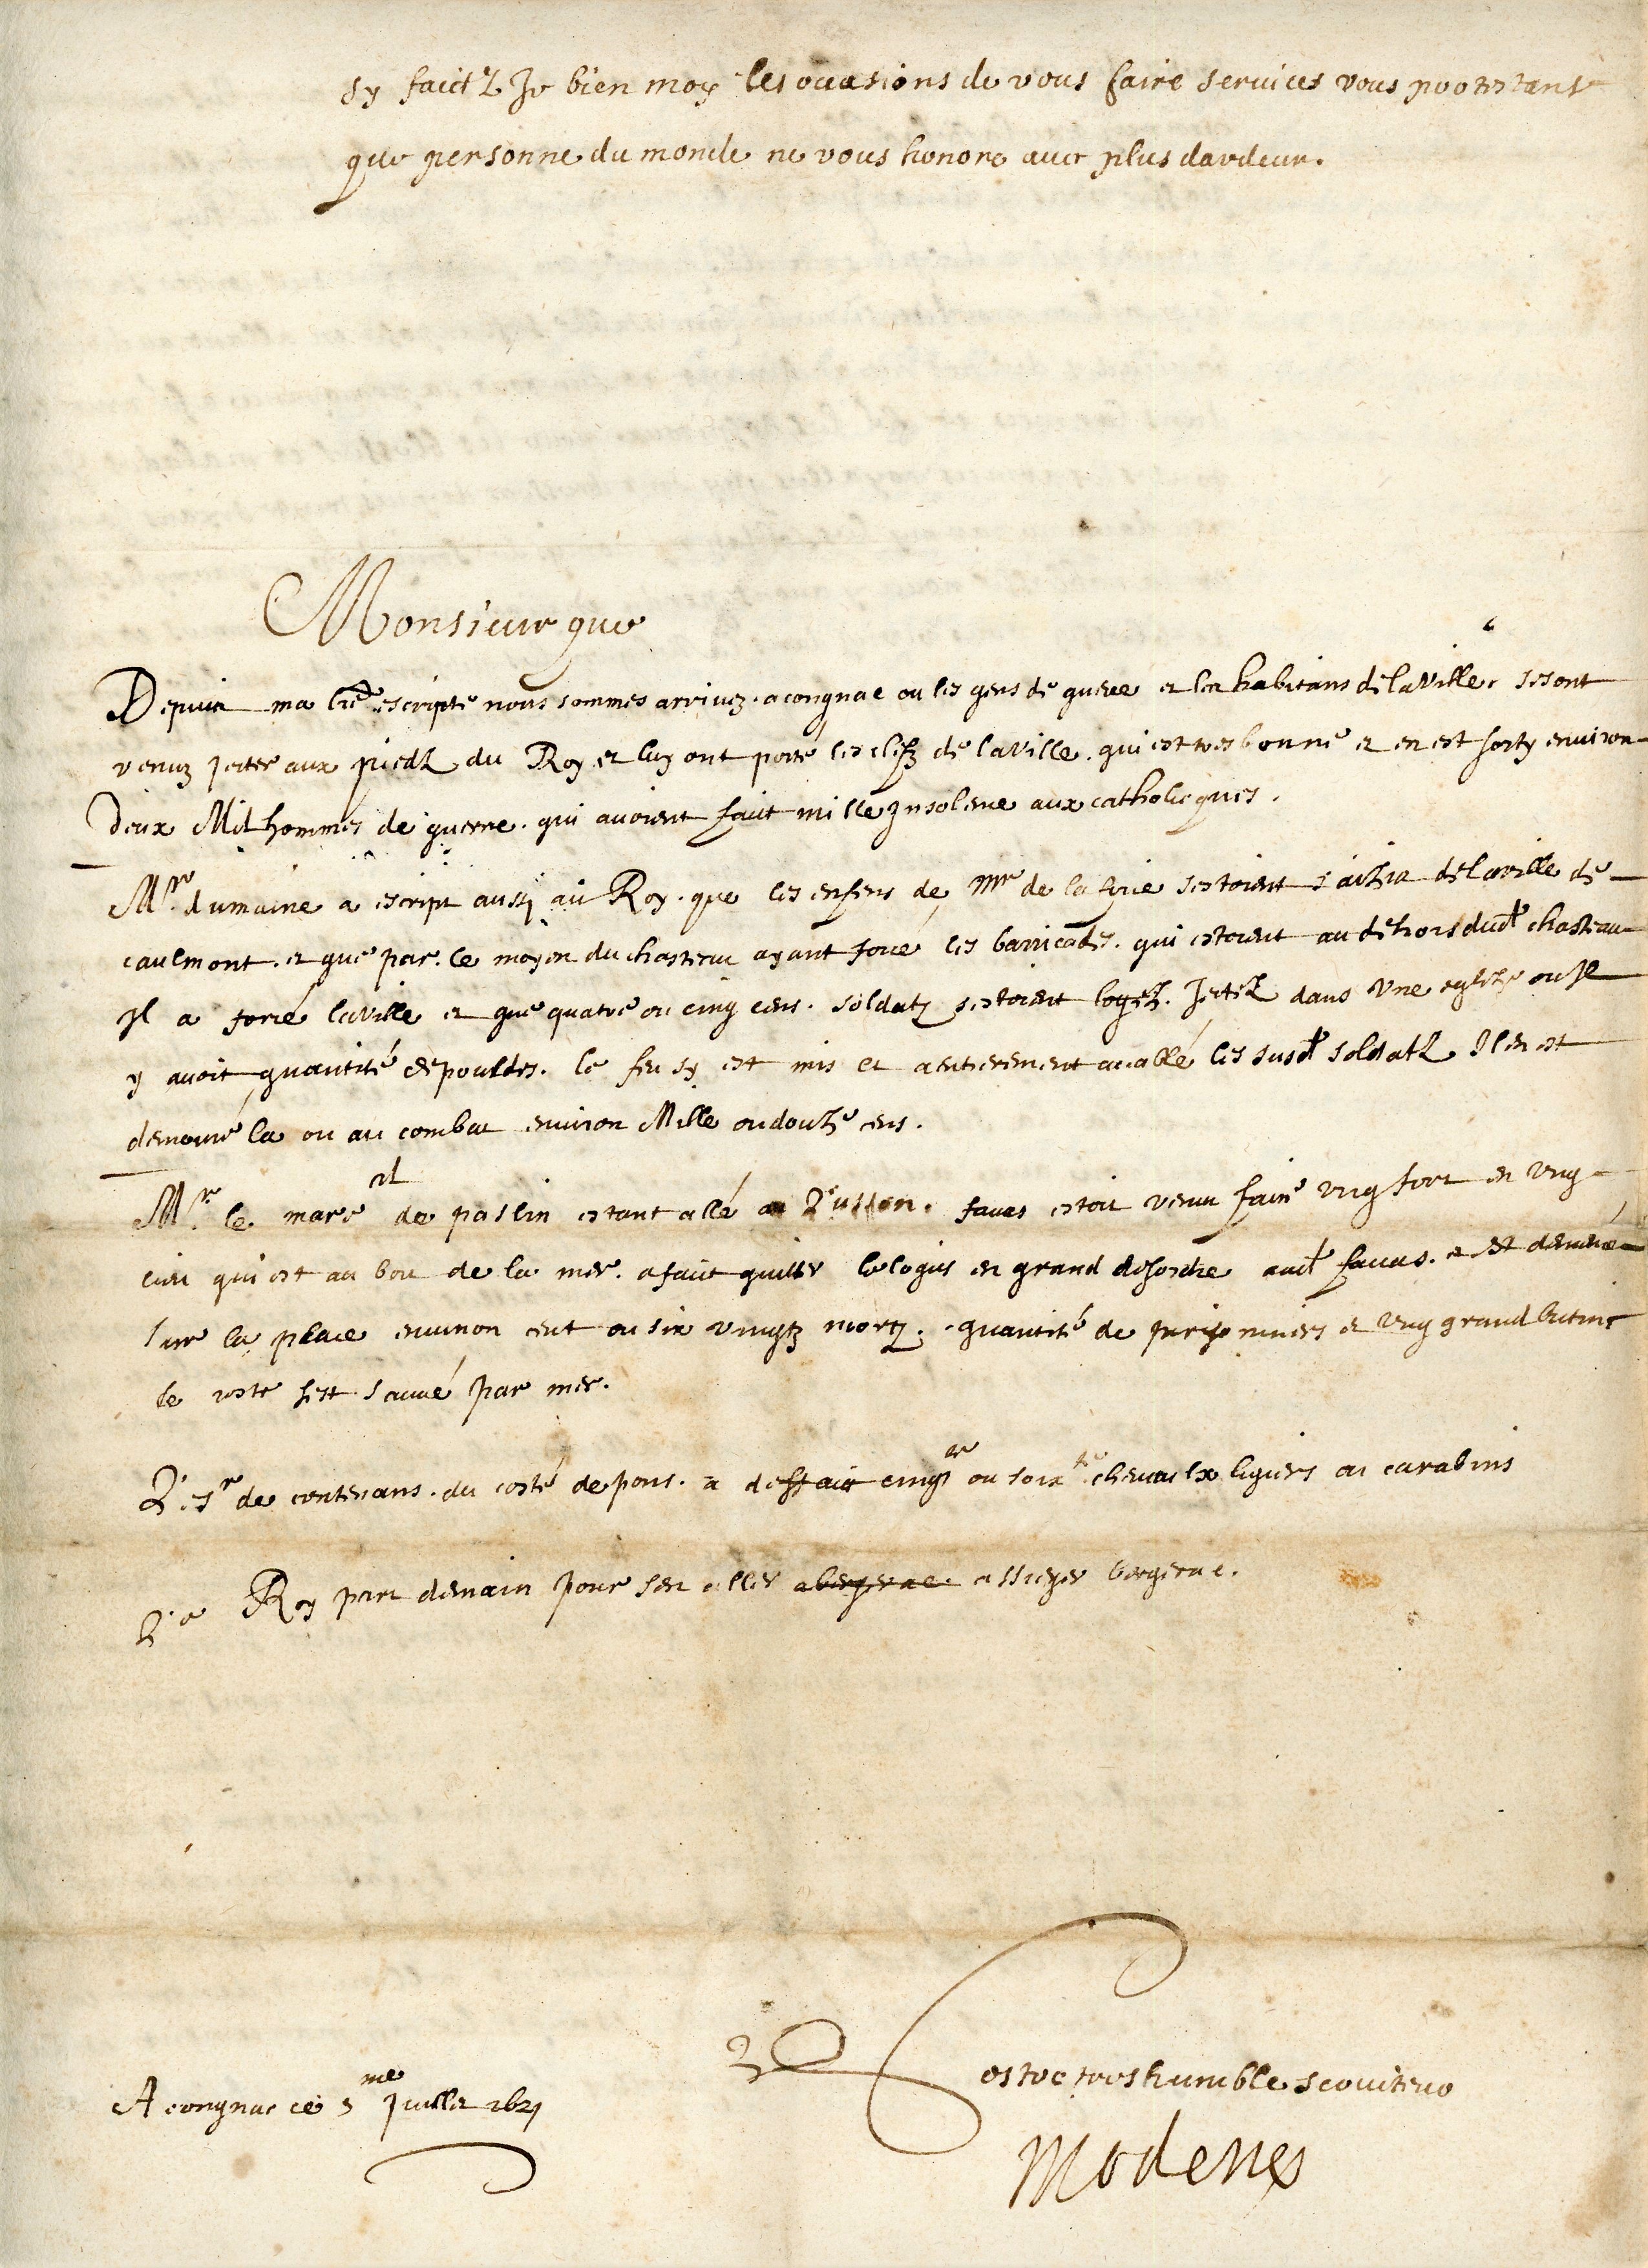 sy faictz Je bien moy les occasions de vous faire services vous protestant
que personne du monde ne vous honore avec plus dardeur.
Monsieur que
Depuis ma lre escripte nous sommes arrivez a congnac ou les gens de guerre et les habitans de la Ville se sont
venuz jecter aux piedz du Roy et luy ont porté les clefz de la Ville. qui est tres bonne et en est sorty environ
deux Mil hommes de guerre. qui avoient faict mille Insolence aux catholicques.
Mr. dumaine a escript aussy au Roy. que les enfens de Mr de la force sestoient saiziz de la ville de
caulmont. et que par le moyen du chasteau ayant forcé les barricades. qui estoient au dehors dudt chasteau
Il a forcé la Ville et que quatre ou cinq cens. soldatz sestoient logez. Jectez dans Une eglize ou Il
y avoit quantité de pouldres. le feu sy est mis et a entierement accablé les susdt soldatz Il en est
demouré la ou au combat environ Mille ou douze cens.
Mr. le mare al de paslin estant allé a Lusson. favas estoit venu faire ung fort en ung
lieu qui est au bou de la mer. a faict quitter le logis en grand desordre audt favas. et est demeuré
sur la place environ cent ou six vingtz mortz. quantité de prisonniers et ung grand butin
le reste sest sauvé par mer.
Le sr de contenans. du costé de pons. a deffaict cinqte ou soixte chevaulx legiers ou carabins
Le Roy part demain pour sen aller a bergerac. assieger bergerac.
Vostre tres humble serviteur
A congnac ce 5me Juillet 1621
Modene